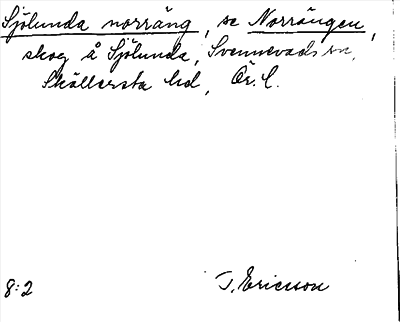 Sjölunda norräng, se Norrängen,
skog å Sjölunda, Svennevads sn,
Sköllersta hd, Ör. l.
8:2
J. Ericsson